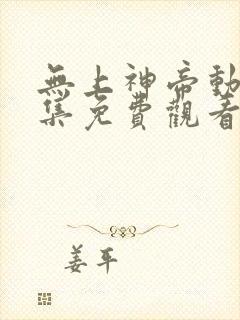 無上神帝動
集免費觀看
姜平